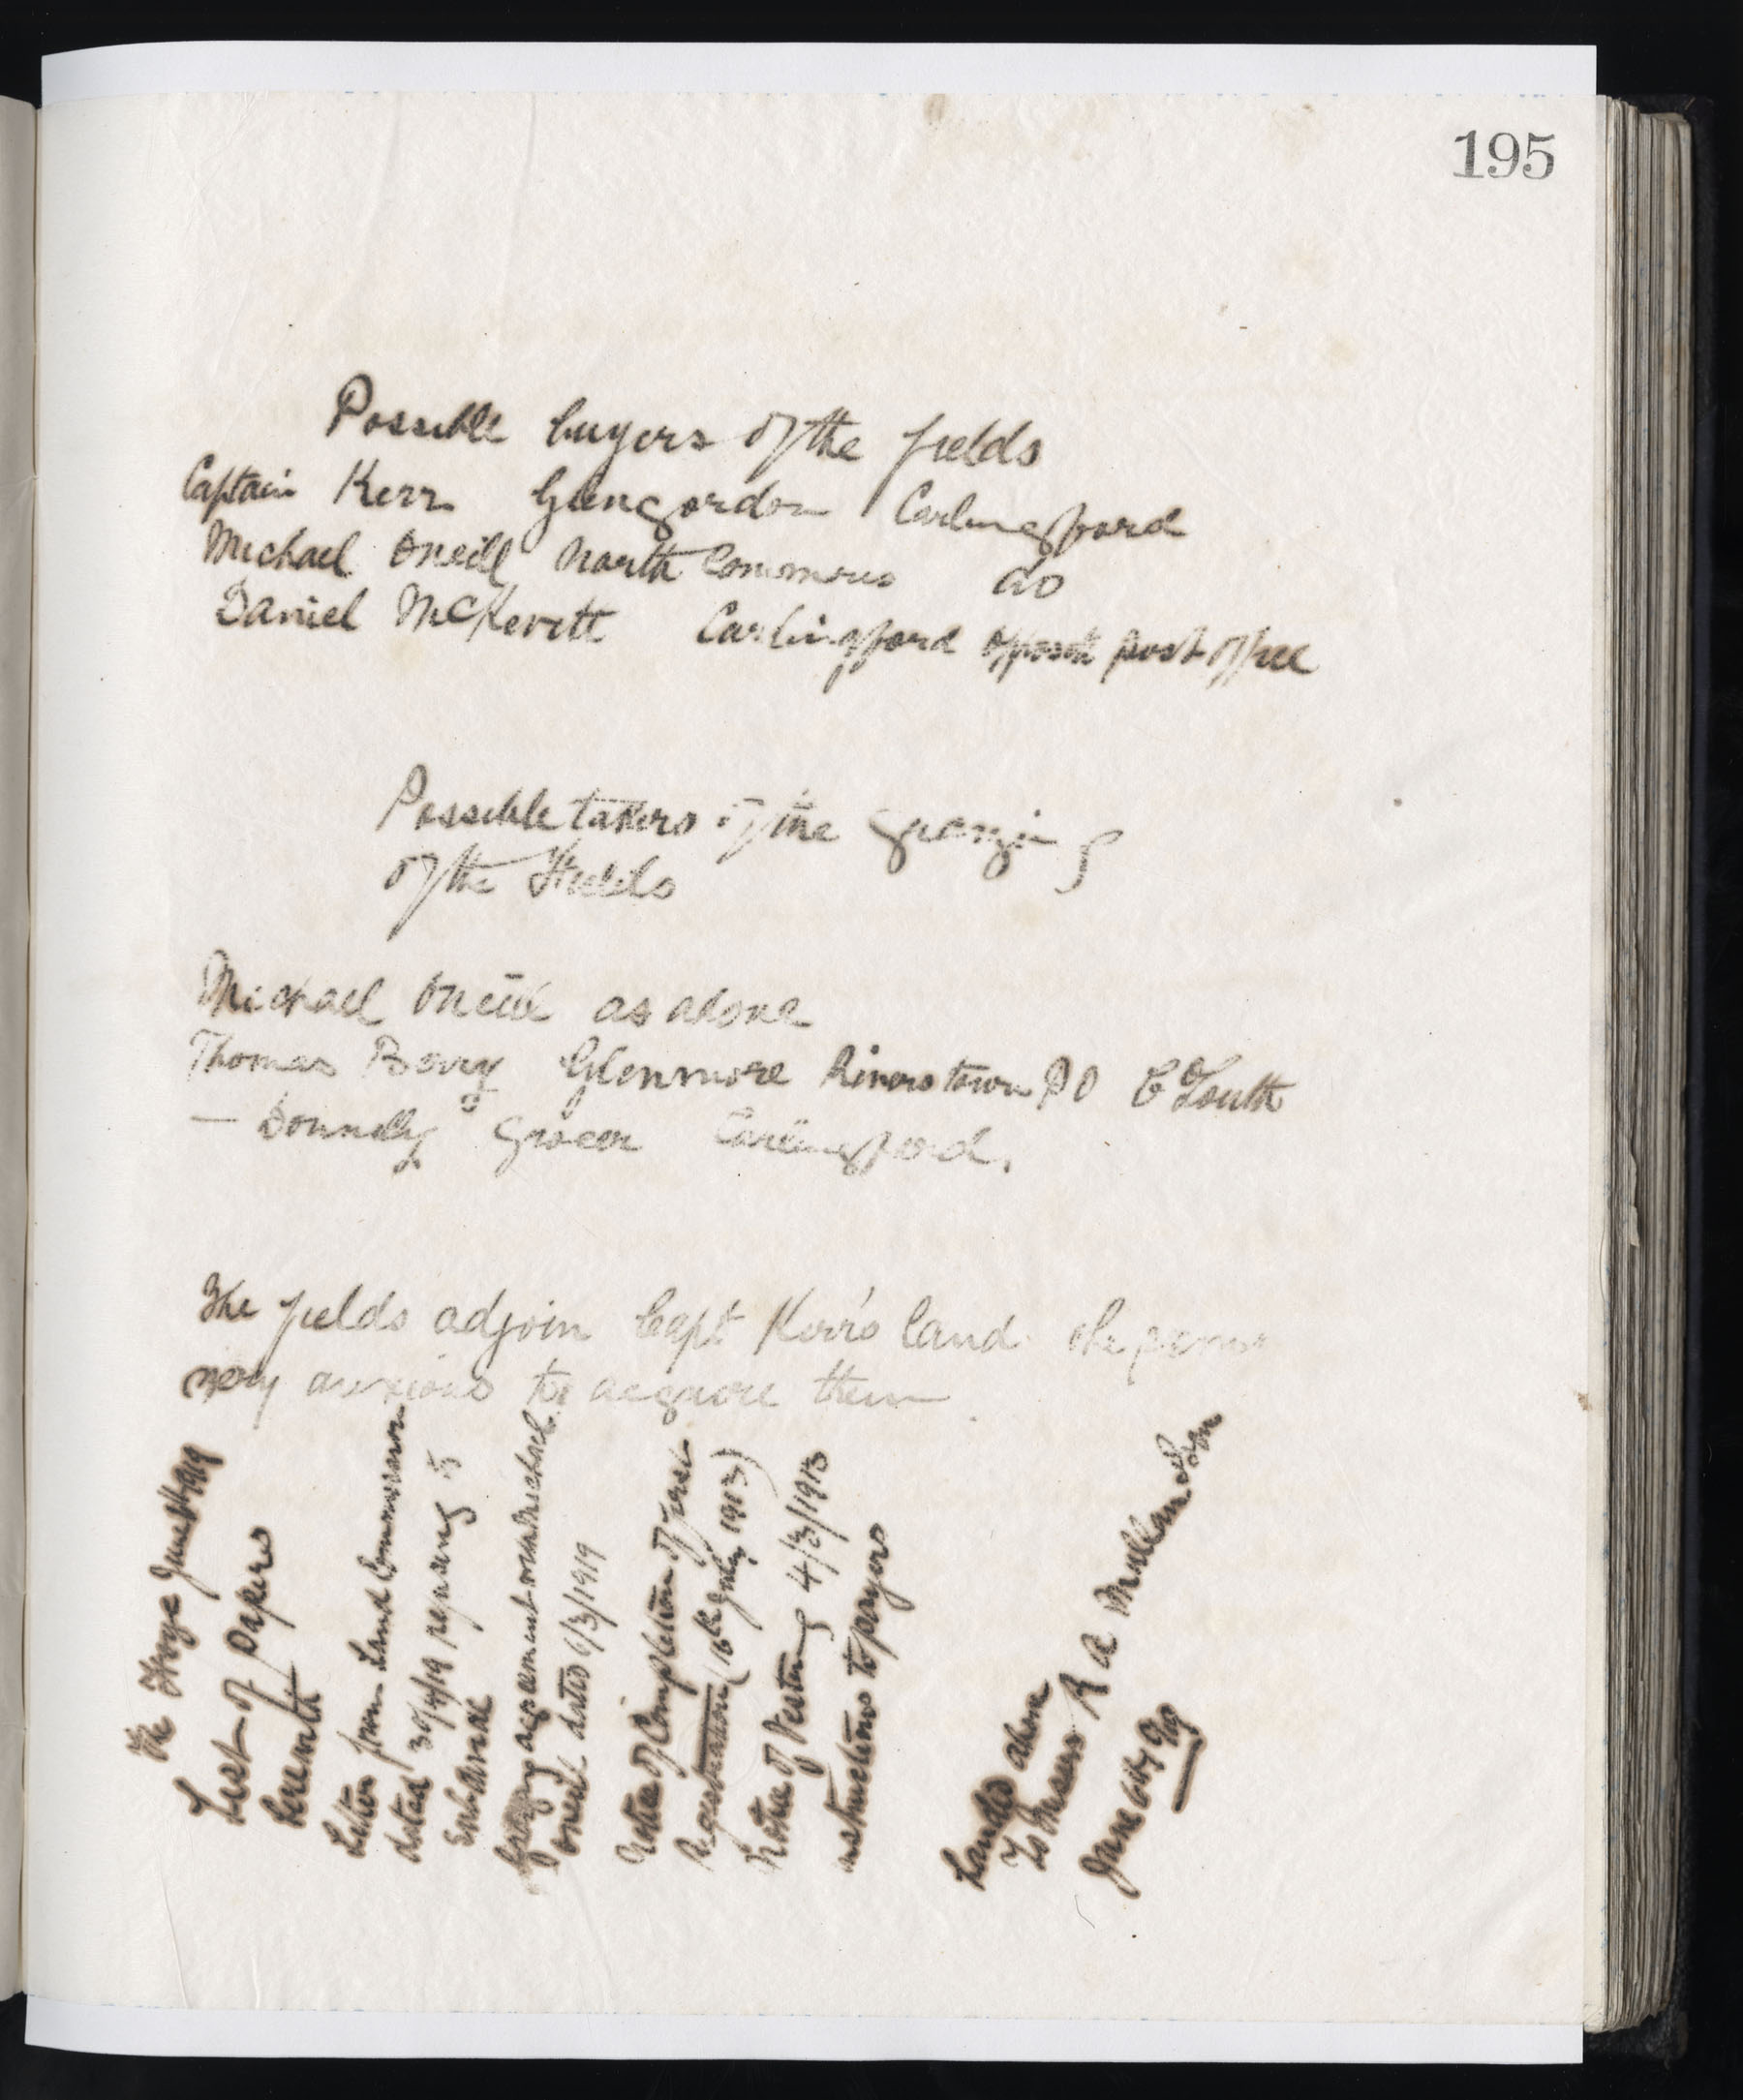 195
Possible buyers of the fields
Captain Kerr Glengordon Carlingford
Michael Oneill North Commons do
Daniel McKevitt Carlingford opposite post office
Possible takers of the grazing
of the Fields
Michael Oneill as above
Thomas Berry Glenmore Riverstown P O Co Louth
— Donnelly Grocer Carlingford.
The fields adjoin Capt Kerr's land
very anxious to acquire them
List of Papers
herewith
Letter from Land Commission
dated 30/4/19 repaying
Grazing agreement with Michael
Oneill dated 6/3/1919
Notice of Completion of First
Registration (16th July 1913)
Notice of Vesting 4/3/1913
instructions to payers
Lands above
To Messrs R A Mullan & Son
June 6th 1919